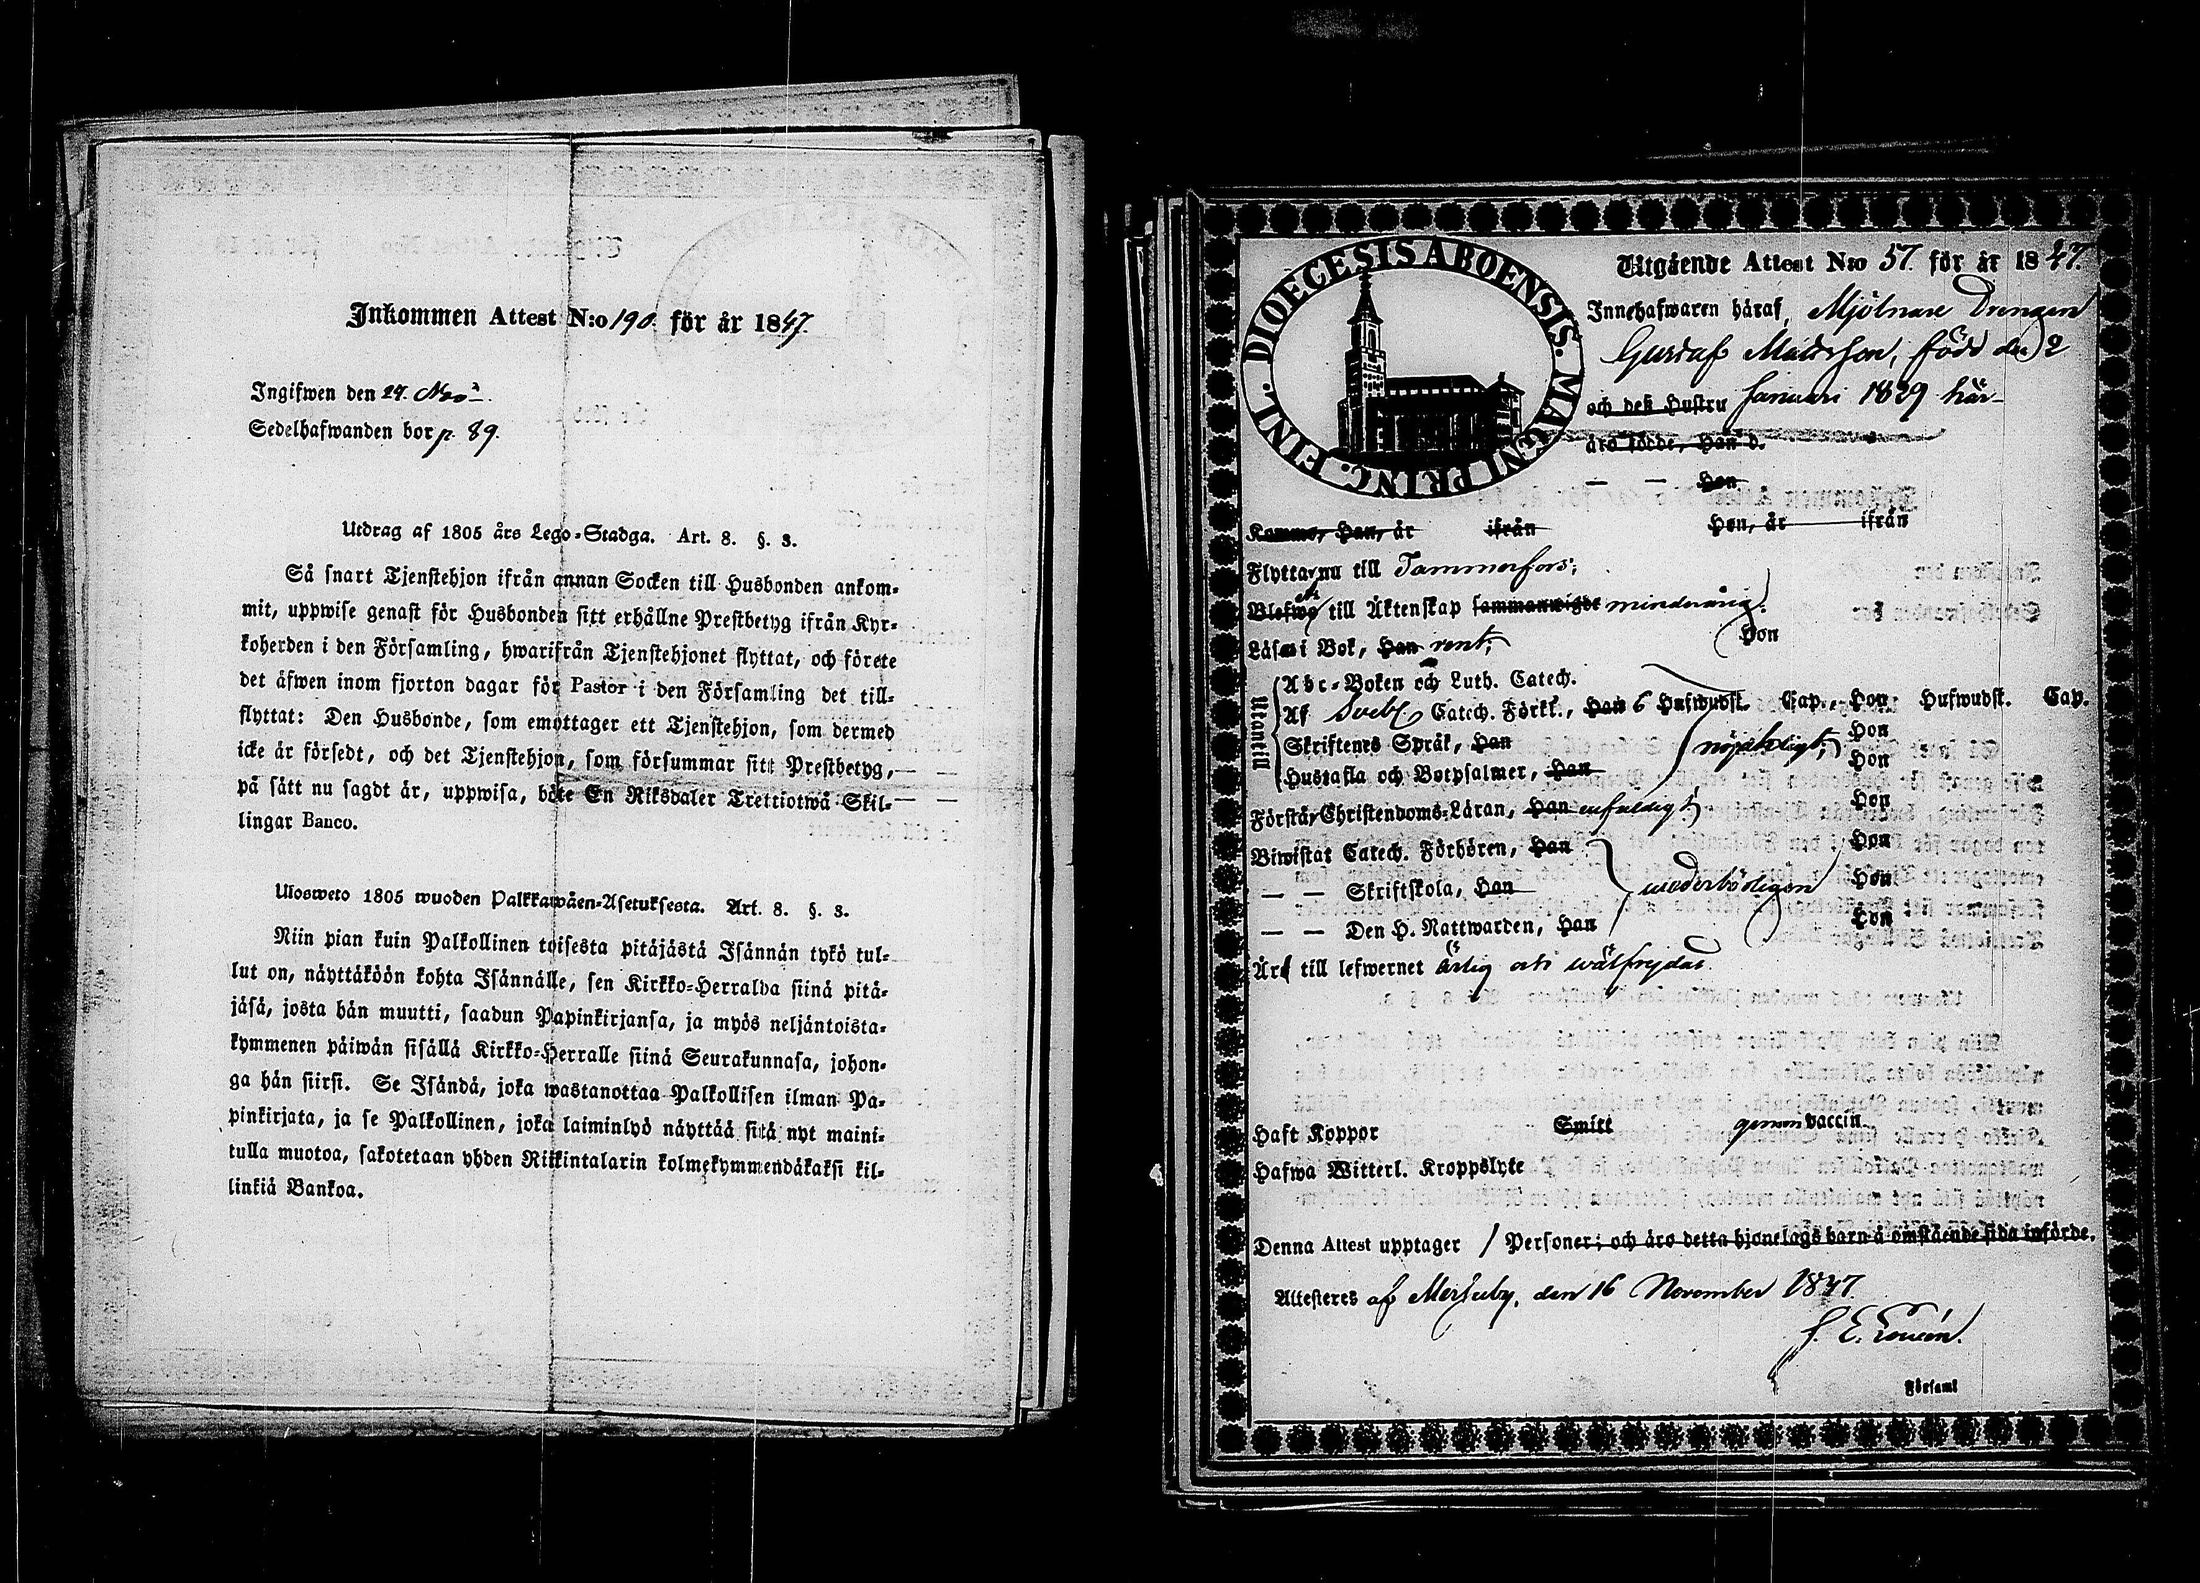 Inkommen Attest N:o 190. för år 1847.
Ingifwen den 27. Nov
Sedelhafwanden bor p. 89.
Utdrag af 1805 års Lego-Stadga. Art. 8. §. 3.
Så snart Tjenstehjon ifrån annan Socken till Husbonden ankom-
mit, uppwise genast för Husbonden sitt erhållne Prestbetyg ifrån Kyr-
koherden i den Församling, hwarifrån Tjenstehjonet flyttat, och förete
det äfwen inom fjorton dagar för Pastor i den Församling det till-
flyttat: Den Husbonde, som emottager ett Tjenstehjon, som dermed
icke är försedt, och det Tjenstehjon, som försummar sitt Prestbetyg,
på sätt nu sagdt är, uppwisa, böte En Riksdaler Trettiotwå Skil-
lingar Banco.
Ulosweto 1805 wuoden Palkkawäen-Asetuksesta. Art. 8. §. 3.
Niin pian kuin Palkollinen toisesta pitäjästä Isännän tykö tul-
lut on, näyttäköön kohta Isännälle, sen Kirkko-Herralda siinä pitä-
jäsä, josta hän muutti, saadun Papinkirjansa, ja myös neljäntoista-
kymmenen päiwän sisällä Kirkko-Herralle siinä Seurakunnasa, johon-
ga hän siirsi. Se Isändä, joka wastanottaa Palkollisen ilman Pa-
pinkirjata, ja se Palkollinen, joka laiminlyö näyttää sitä nyt maini-
tulla muotoa, sakotetaan yhden Riikintalarin kolmekymmendäkaksi kil-
linkiä Bankoa.
DIOECESIS ABOENSIS. MAGNI PRINC. FINL.
Utgående Attest N:o 57. för år 1847.
Innehafwaren häraf, Mjölnare Drengen
Gustaf Mattsson, född den 2
och deß Hustru Januari 1829 här
äro födde, Han d.
— — Hon
Kommo, Han, år ifrån Hon, år ifrån
Flytta nu till Tammerfors;
Blefwo till Äktenskap sammanwigde minderårig.
Läsa i Bok, Han rent; Hon
Utanlill
Abc-Boken och Luth. Catech.
Af Sveb. Catech. Förkl., Han 6 Hufwudst. Cap., Hon Hufwudst. Cap.
Skriftenes Språk, Han nöjaktigt; Hon
Hustafla och Botpsalmer, Han Hon
Förstår Christendoms-Läran, Han enfaldigt; Hon
Biwistat Catech. Förhören, Han Hon
— — Skriftskola, Han wederbörligen Hon
— — Den H. Nattwarden, Han Hon
Är till lefwernet ärlig och wälfrejdad.
Haft Koppor Smitt genom vaccin
Hafwa Witterl. Kroppslyte
Denna Attest upptager 1 Personer; och äro detta hjonelags barn å omstående sida införde.
Attesteres af Messuby, den 16 November 1847.
Församl